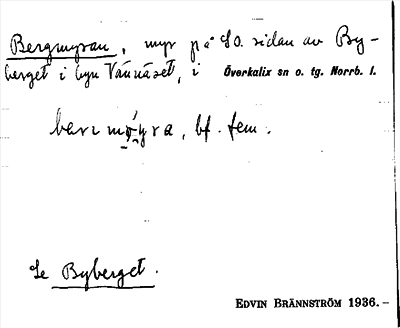 Bergmyran, myr på SO. sidan av By-
berget i byn Vännäset, i Överkalix sn o. tg. Norrb. l.
barımo̬yra, bf. fem.
Se Byberget.
EDVIN BRÄNNSTRÖM 1936.-